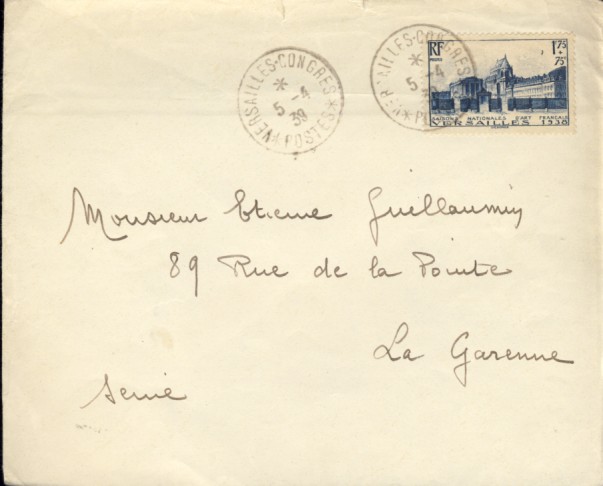 VERSAILLES-CONGRES * POSTES *
*
5 -4
39
VERSAILLES-CONGRES * P
*
5 -4
RF
POSTES
1F75
+
75c
SAISONS NATIONALES D'ART FRANÇAIS
VERSAILLES 1938
Monsieur Etienne Guillaumin
89 Rue de la Pointe
La Garenne
Seine